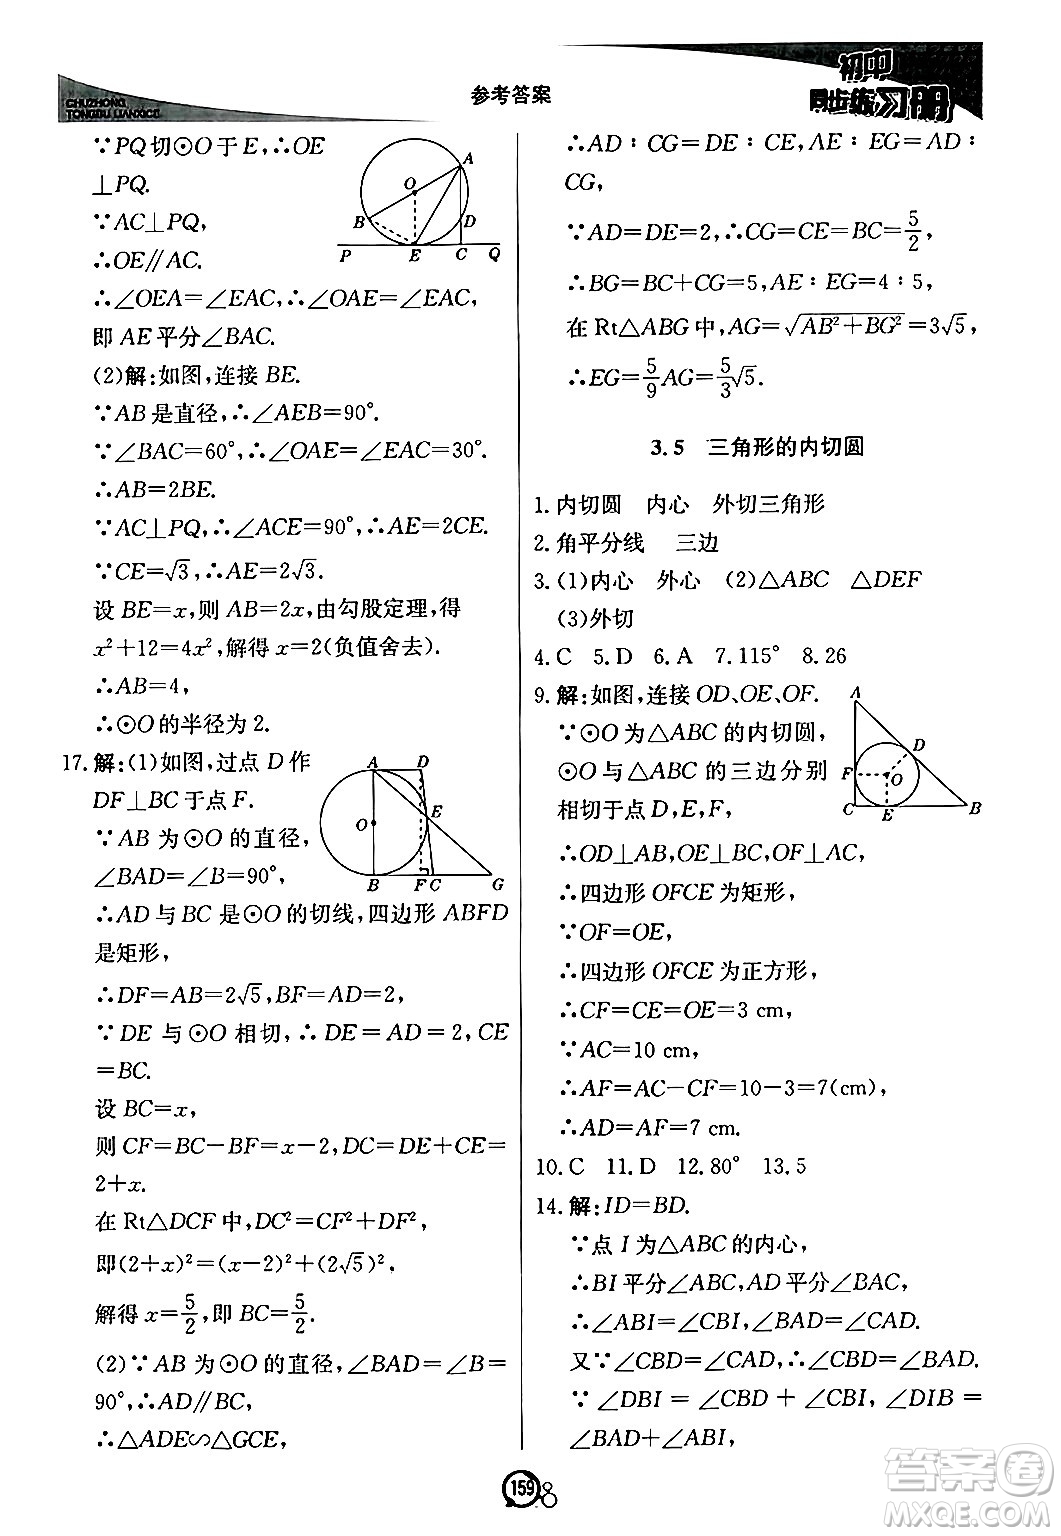 CHUZHONG
TONGBU LIANXICE
参考答案
初中
同步练习册
∵PQ切⊙O于E,∴OE
⊥PQ.
∵AC⊥PQ,
∴OE∥AC.
∴∠OEA=∠EAC,∴∠OAE=∠EAC,
即AE平分∠BAC.
(2)解:如图,连接BE.
∵AB是直径,∴∠AEB=90°.
∵∠BAC=60°,∴∠OAE=∠EAC=30°.
∴AB=2BE.
∵AC⊥PQ,∴∠ACE=90°,∴AE=2CE.
∵CE=√3,∴AE=2√3.
设BE=x,则AB=2x,由勾股定理,得
x²+12=4x²,解得x=2(负值舍去).
∴AB=4,
∴⊙O的半径为2.
A
O
B
D
P
E
C
Q
17.解:(1)如图,过点D作
DF⊥BC于点F.
∵AB为⊙O的直径,
∠BAD=∠B=90°,
∴AD与BC是⊙O的切线,四边形ABFD
是矩形,
∴DF=AB=2√5,BF=AD=2,
∵DE与⊙O相切,∴DE=AD=2,CE
=BC.
设BC=x,
则CF=BC-BF=x-2,DC=DE+CE=
2+x.
在Rt△DCF中,DC²=CF²+DF²,
即(2+x)²=(x-2)²+(2√5)².
解得x=5/2,即BC=5/2.
(2)∵AB为⊙O的直径,∠BAD=∠B=
90°,∴AD∥BC.
∴△ADE∽△GCE,
A
D
E
O
B
F
C
G
∴AD:CG=DE:CE,AE:EG=AD:
CG,
∵AD=DE=2,∴CG=CE=BC=5/2,
∴BG=BC+CG=5,AE:EG=4:5,
在Rt△ABG中,AG=√(AB²+BG²)=3√5,
∴EG=5/9AG=5/3√5.
3.5 三角形的内切圆
1.内切圆 内心 外切三角形
2.角平分线 三边
3.(1)内心 外心 (2)△ABC △DEF
(3)外切
4.C 5.D 6.A 7.115° 8.26
9.解:如图,连接OD、OE、OF.
∵⊙O为△ABC的内切圆,
⊙O与△ABC的三边分别
相切于点D,E,F,
∴OD⊥AB,OE⊥BC,OF⊥AC,
∴四边形OFCE为矩形,
∵OF=OE,
∴四边形OFCE为正方形,
∴CF=CE=OE=3 cm,
∵AC=10 cm,
∴AF=AC-CF=10-3=7(cm),
∴AD=AF=7 cm.
A
D
F
O
C
E
B
10.C 11.D 12.80° 13.5
14.解:ID=BD.
∵点I为△ABC的内心,
∴BI平分∠ABC,AD平分∠BAC,
∴∠ABI=∠CBI,∠BAD=∠CAD.
又∵∠CBD=∠CAD,∴∠CBD=∠BAD.
∵∠DBI=∠CBD+∠CBI,∠DIB=
∠BAD+∠ABI,
159
答案圈
MXQE.COM